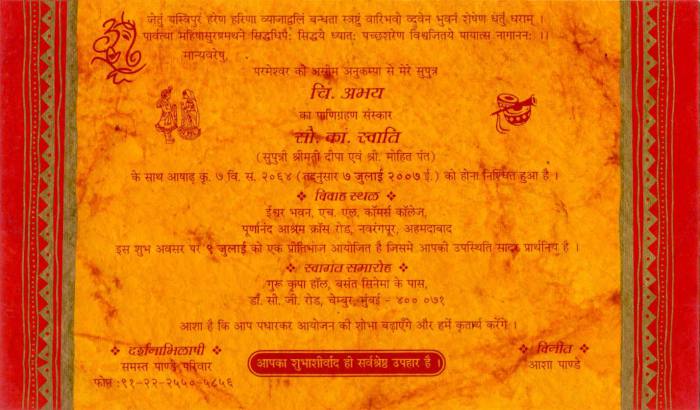 जेतुं यस्त्रिपुरं हरेण हरिणा व्याजाद्वलिं बध्नता स्त्रष्टुं वारिभवो द्भवेन भुवनं शेषेण धर्तुं धराम् ।
पार्वत्या महिषासुरप्रमथने सिद्धाधिपैः सिद्धये ध्यातः पच्छशरेण विश्वजितये पायात्स नागाननः ।।
मान्यवरेषु,
परमेश्वर की असीम अनुकम्पा से मेरे सुपुत्र
चि. अभय
का पाणिग्रहण संस्कार
सौ. कां. स्वाति
(सुपुत्री श्रीमती दीपा एवं श्री. मोहित पंत)
के साथ आषाढ़ कृ. ७ वि. सं. २०६४ (तद्नुसार ७ जुलाई २००७ ई.) को होना निश्चित हुआ है ।
विवाह स्थल
ईश्वर भवन, एच. एल. कॉमर्स कॉलेज,
पूर्णानंद आश्रम क्रॉस रोड, नवरंगपूर, अहमदाबाद
इस शुभ अवसर पर ९ जुलाई को एक प्रीतिभोज आयोजित है जिसमे आपकी उपस्थिति सादर प्रार्थनिय है ।
स्वागत समारोह
गुरू कृपा हॉल, बसंत सिनेमा के पास,
डॉ. सी. जी. रोड, चेम्बुर, मुंबई - ४०० ०७१
आशा है कि आप पधारकर आयोजन की शोभा बढ़ाएँगे और हमें कृतार्थ करेंगे ।
दर्शनाभिलाषी
समस्त पाण्डे परिवार
फोन :९१-२२-२५५०-५८५६
आपका शुभाशीर्वाद ही सर्वश्रेष्ठ उपहार है ।
विनीत
आशा पाण्डे